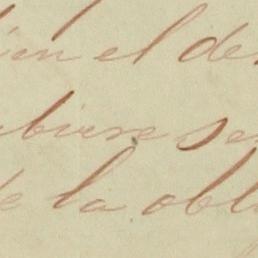 en el de
ubiere se
de la obl